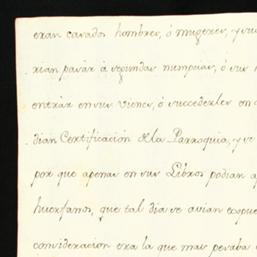 eran casados hombres, ó mugeres, y
rian pasár á segundas nuncias, ó
entrár en sus vienes, ó succederles en
dian Certificación de la Parroquia, y
por que apenas en sus Libros podian
huerfanos, que tal dia se avian
consideracion era la que mas pesaba